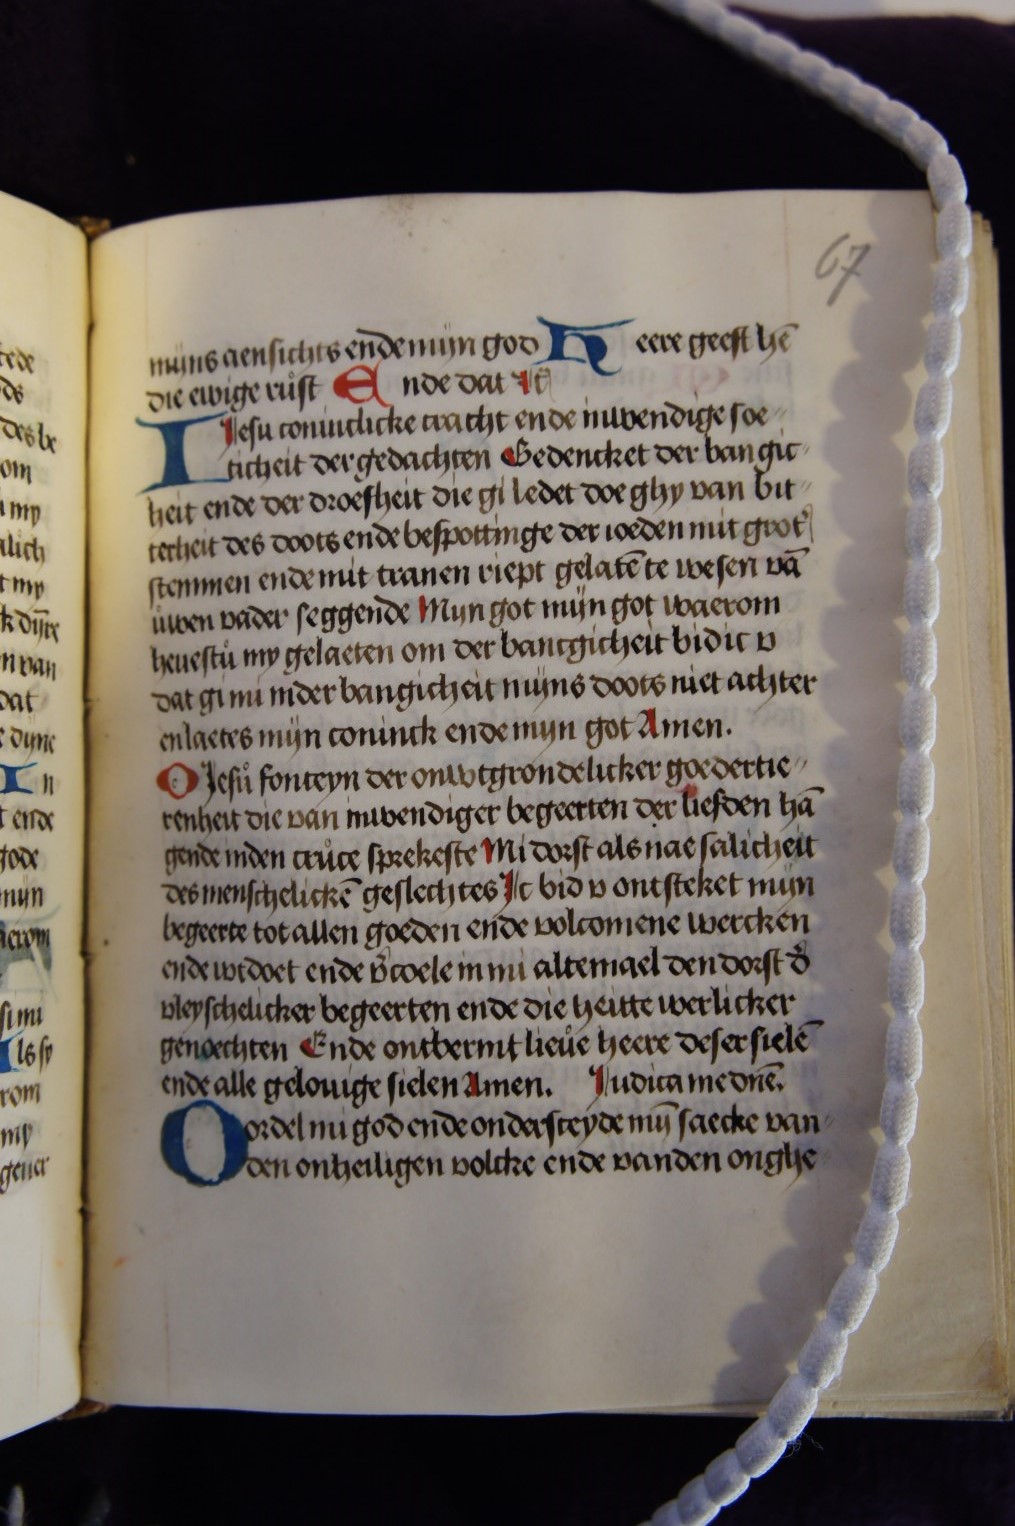 67
mijns aensichts ende mijn god Heere geest hē
die ewige růst Ende dat it
Iesu coninclicke cracht ende inwendige soe
ticheit der gedachten Gedencket der bangic
heit ende der droefheit die gi ledet doe ghy van bit
terheit des doots ende bespottinge der ioeden mit groot
stemmen ende mit tranen riept gelatē te wesen vā
ůwen vader seggende Mijn got mijn got waerom
heuestů my gelaeten om der bancgicheit bidic v
dat gi mi inder bangicheit mijns doots niet achter
en laetes mijn coninck ende mijn got Amen.
O Jesů fonteyn der onwtgrondelicker goedertie
renheit die van inwendiger begeerten der liefden hā
gende inden crůce sprekeste Mi dorst als nae salicheit
des menschelickē geslechtes Ic bid v ontsteket mijn
begeerte tot allen goeden ende volcomene wercken
ende wtdoet ende v̄coele in mi altemael den dorst d̄
vleyschelicker begeerten ende die heitte werlicker
genoechten Ende ontbermt lieůe heere deser sielē
ende alle gelouige sielen Amen. Iudica me dn̄e.
Oordel mi god ende ondersceyde mij̄ saecke van
den onheiligen volcke ende vanden onghe